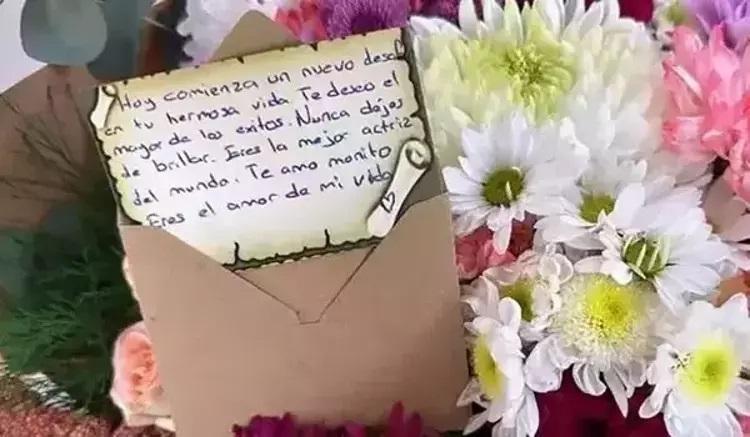 Hoy comienza un nuevo desa
en tu hermosa vida Te deseo el
mayor de los exitos. Nunca dejes
de brillar. Eres la mejor actriz
del mundo. Te amo monito
Eres el amor de mi vida